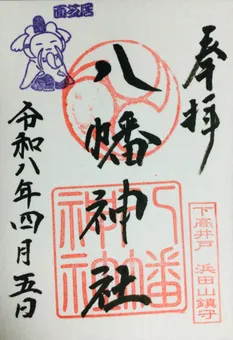 奉拝
八幡神社
八幡神社
下高井戸 浜田山鎮守
令和八年四月五日
面芝居